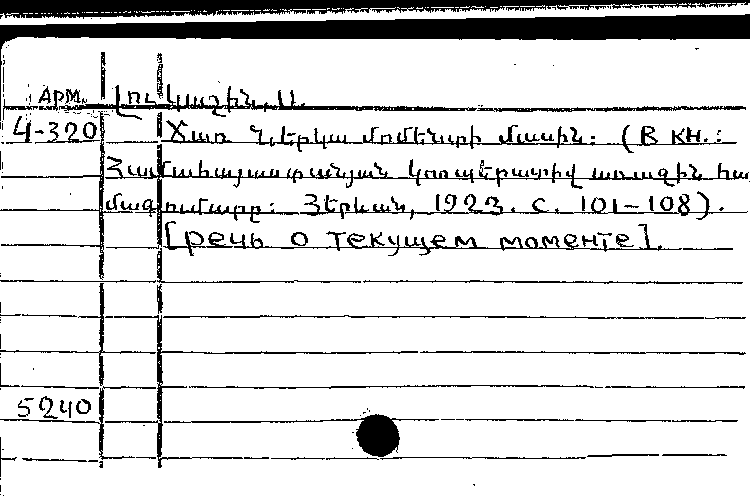 АРМ. Լուկաշին, Ս.
4-320 Ճառ Ներկա մոմենտի մասին: (В кн.:
Համահայաստանյան կոոպերատիվ առաջին հա
մագումարը: Յերևան, 1923. с. 101-108).
[речь о текущем моменте].
5240